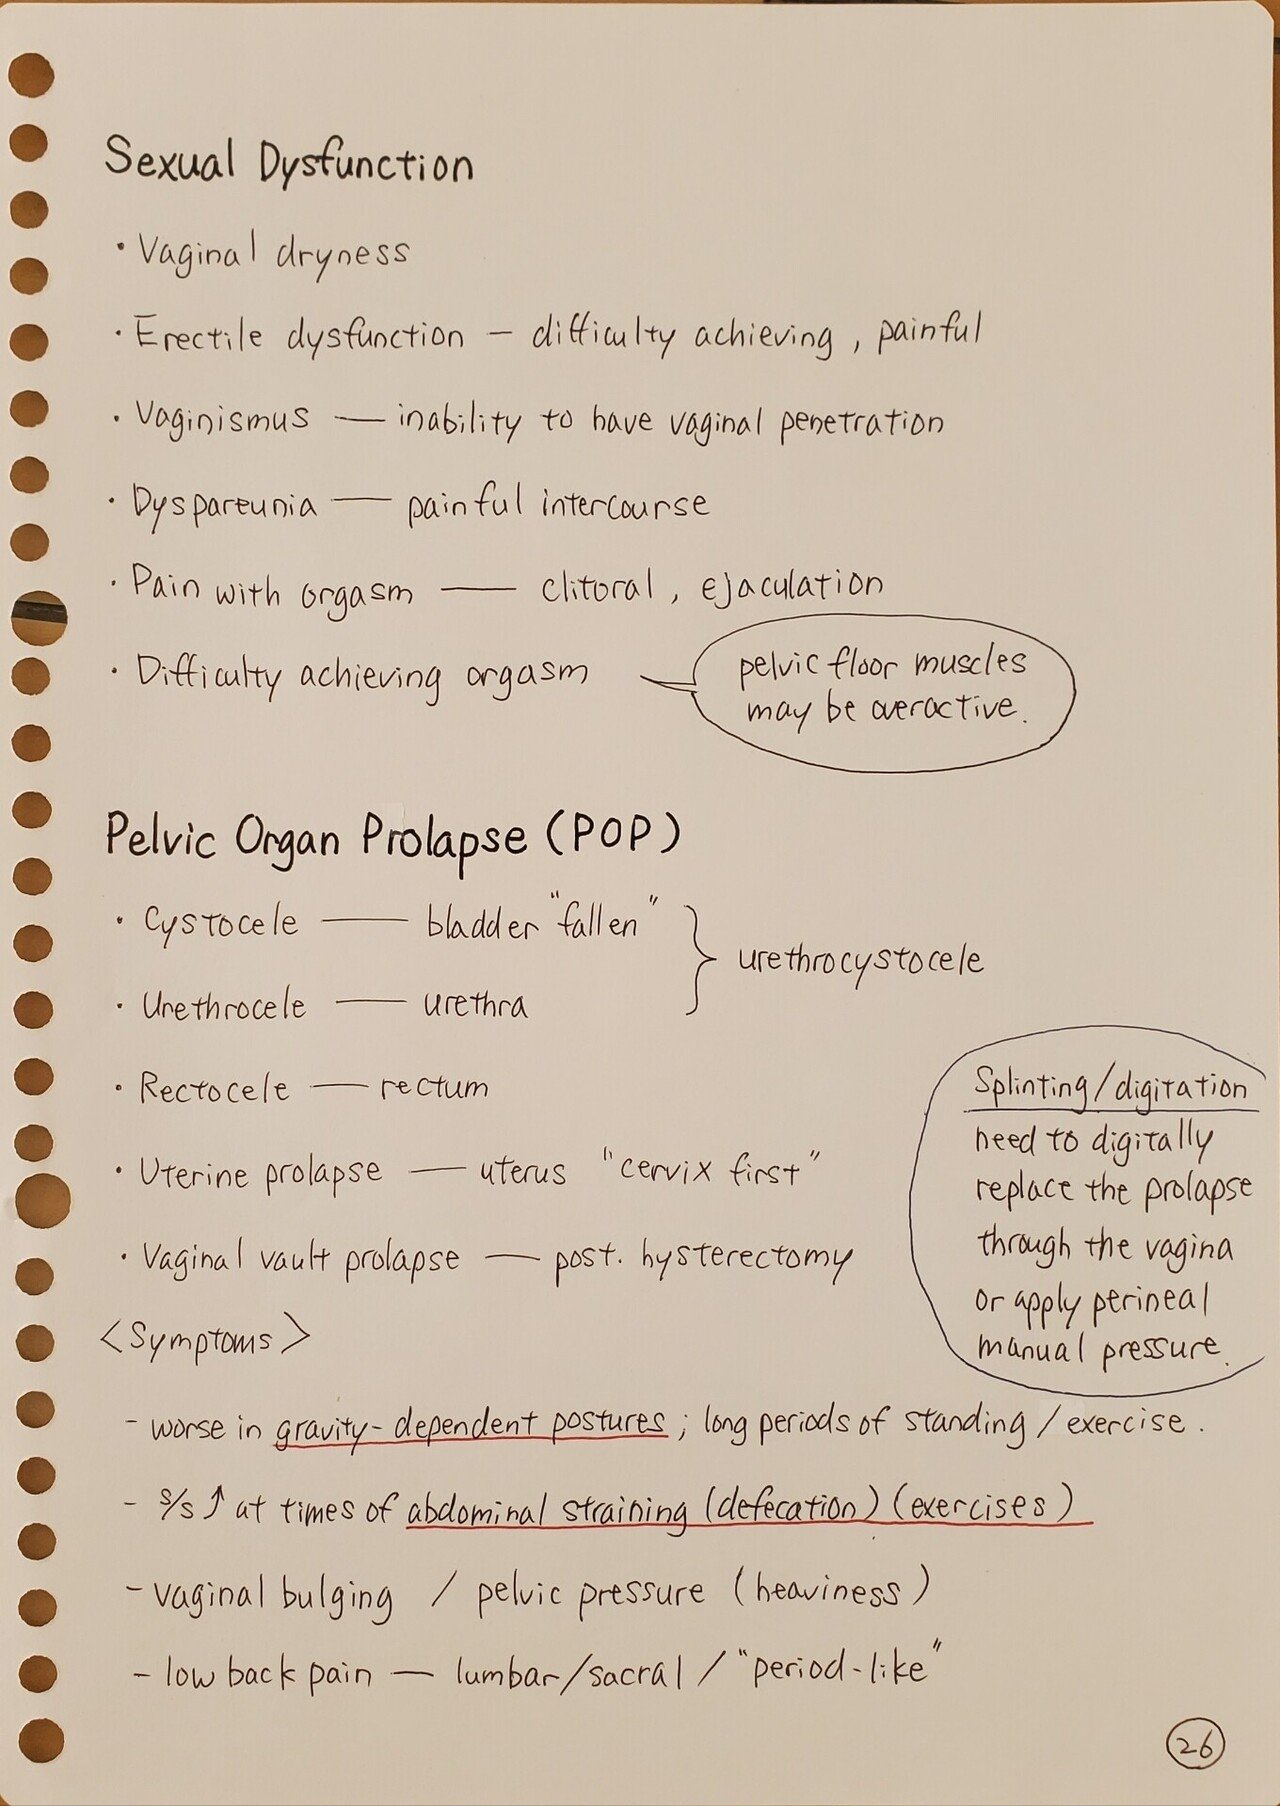 Sexual Dysfunction
• Vaginal dryness
• Erectile dysfunction — difficulty achieving, painful
• Vaginismus — inability to have vaginal penetration
• Dyspareunia — painful intercourse
• Pain with orgasm — clitoral, ejaculation
• Difficulty achieving orgasm
pelvic floor muscles
may be overactive.
Pelvic Organ Prolapse (POP)
• Cystocele — bladder "fallen"
• Urethrocele — urethra
urethrocystocele
• Rectocele — rectum
• Uterine prolapse — uterus "cervix first"
• Vaginal vault prolapse — post. hysterectomy
Splinting/digitation
need to digitally
replace the prolapse
through the vagina
or apply perineal
manual pressure.
<Symptoms>
- worse in gravity-dependent postures ; long periods of standing / exercise.
- s/s ↑ at times of abdominal straining (defecation) (exercises)
- vaginal bulging / pelvic pressure (heaviness)
- low back pain — lumbar/sacral / "period-like"
26